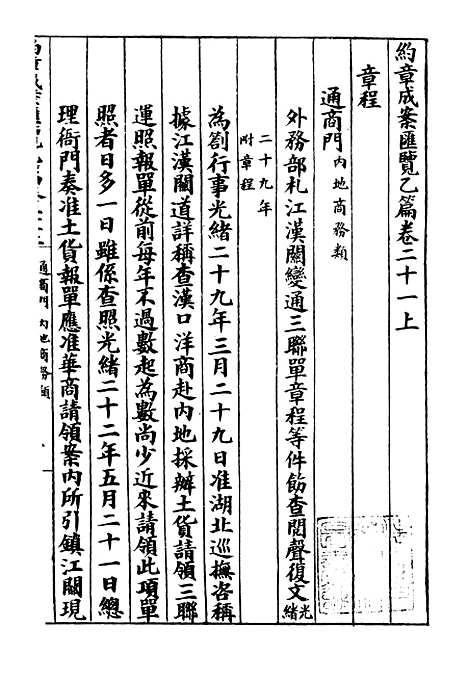 約章成案匯覽乙篇卷三十一上
章程
通商門內地商務類
外務部札江漢關變通三聯單章程等件飭查閱聲復文光緒
二十九年
附章程
為劄行事光緒二十九年三月二十九日准湖北巡撫咨稱
據江漢關道詳稱查漢口洋商赴內地採辦土貨請領三聯
運照報單從前每年不過數起為數尚少近來請領此項單
照者日多一日雖係查照光緒二十二年五月二十一日總
理衙門奏准土貨報單應准華商請領案內所引鎮江關現
通商門 內地商務類